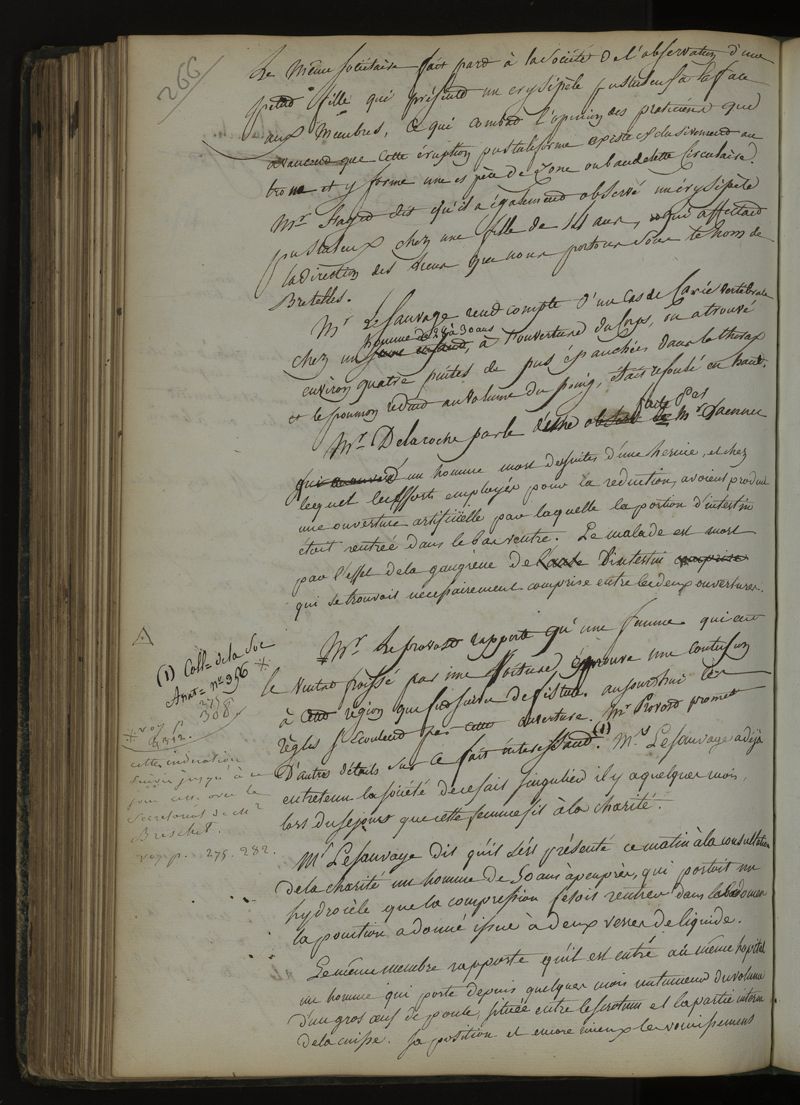 266
Le même sociétaire fait part à la Société de l'observation d'une
petite fille qui présente un erysipèle pustuleux à la face
aux membres, ce qui combat l'opinion des praticiens que
que cette éruption pustuleforme existe exclusivement au
tronc et y forme une espèce de Zone ou bandelette Circulaire.
Mr. dit qu'il a également observé un érysipèle
pustuleux chez une fille de 14 ans, qui affectait
la direction des liens que nous portons sous le nom de
Bretelles.
Mr. Lesauvage rend compte d'un cas de Carie vertébrale
homme de 28 à 30 ans
chez un jeune enfant, à l'ouverture du Corps, on a trouvé
environ quatre pintes de pus épanchées dans le thorax
et le poumon réduit au volume du poing, était refoulé en haut.
faite par
Mr. Delaroche parle d'une de Mr Laennec
d'un homme mort des suites d'une hernie, et chez
lequel les efforts employés pour la réduction, avoient produit
une ouverture artificielle par laquelle la portion d'intestin
était rentrée dans le bas ventre. Le malade est mort
par l'effet de la gangrène de l'anse d'intestin comprise
qui se trouvait nécessairement comprise entre les deux ouvertures.
Mr. Leprovost rapporte qu'une femme qui eut
le ventre froissé par une voiture, éprouve une contusion
à cette région qui fut suivie de fistule. aujourd'hui les
règles s'écoulent par cette ouverture. Mr Provost promet
D'autre détails sur ce fait intéressant (1). Mrs Lesauvage a déjà
entretenu la société de ce fait singulier il y a quelques mois,
lors du séjour que cette femme fit à la charité.
Mr Lesauvage dit qu'il s'est présenté ce matin à la consultation
de la charité un homme de 50 ans à peu près, qui portoit une
hydrocèle que la compression fesoit rentrer dans l'abdomen
la ponction a donné issue à deux verres de liquide.
Le même membre rapporte qu'il est entré au même hopital
un homme qui porte depuis quelques mois une tumeur du volume
d'un gros œuf de poule, située entre le scrotum et la partie interne
de la cuisse. Sa position et encore mieux le vomissement
A
(1) Coll= de la Soc
Anat= No 356
275
308.
* voy
p. 312.
cette indication
suivie jusqu'à ce
jour avec le
Secretariat de Mr
Breschet.
voy. p. 275. 282.